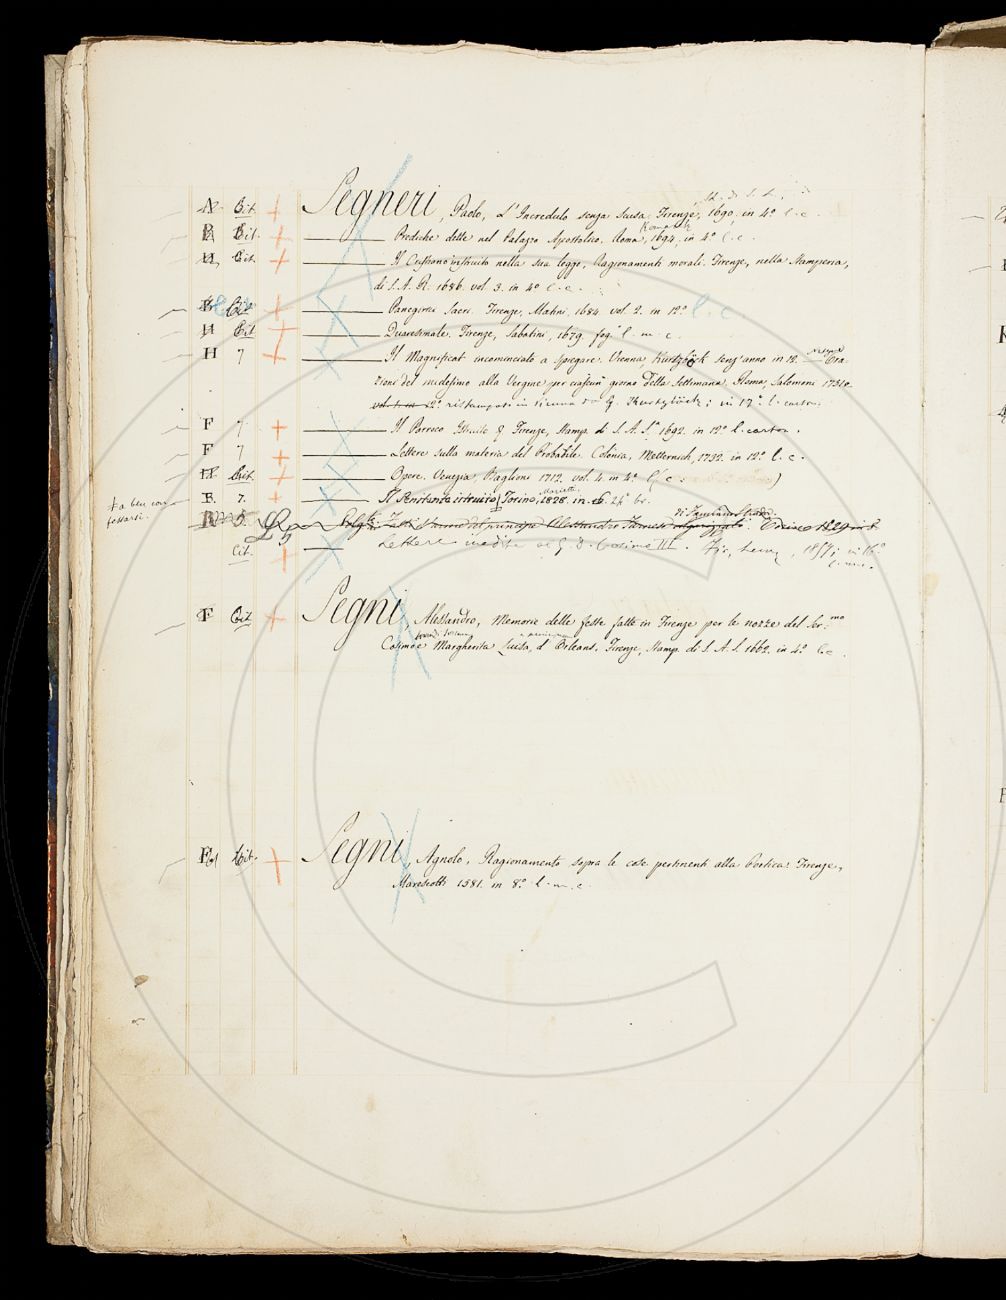 Segneri, Paolo, L'Incredulo senza Scusa. Firenze, 1690, in 4º l. c.
Prediche dette nel Palazzo Apostolico. Roma, Komarek, 1694, in 4º l. c.
H Cit. Il Cristiano instruito nella sua legge, Ragionamenti morali. Firenze, nella Stamperia,
di S. A. R. 1686. vol. 3. in 4º l. c.
Cit. Panegirici Sacri. Firenze, 1684. vol. 2. in 12º l. c.
H Cit. Quaresimale. Firenze, Sabatini, 1679. fog. l. m. c.
H 7 Il Magnificat incominciato a spiegare. Vienna, Kurtzböck senz'anno in 12. Ora-
zioni del medesimo alla Vergine per ciascun giorno della Settimana. Roma, Salomoni
12º ristampati in Vienna da G. Kurtzböck; in 12º l. carton.
F 7 Il Parroco Istruito. Firenze, Stamp. di S. A. S. 1692. in 12º l. carton.
F 7 Lettere sulla materia del Probabile. Colonia, Metternich, 1732. in 12º l. c.
H Cit. Opere. Venezia, Baglioni 1712. vol. 4. in 4º
F. 7. Il Penitente istruito Torino, Marietti 1828. in 24º
+ a ben con-
fessarsi.
Torino 1829
Cit. Lettere inedite al G. D. Cosimo III. Firenze, 1857; in 16º
F Cit Segni, Alessandro, Memorie delle feste fatte in Firenze per le nozze del Ser.mo
Cosimo e Margherita Luisa, d'Orleans. Firenze, Stamp. di S. A. S. 1662. in 4º l. c.
F Cit. Segni, Agnolo, Ragionamento sopra le cose pertinenti alla Poetica. Firenze,
Marescotti 1581. in 8º l. m. c.